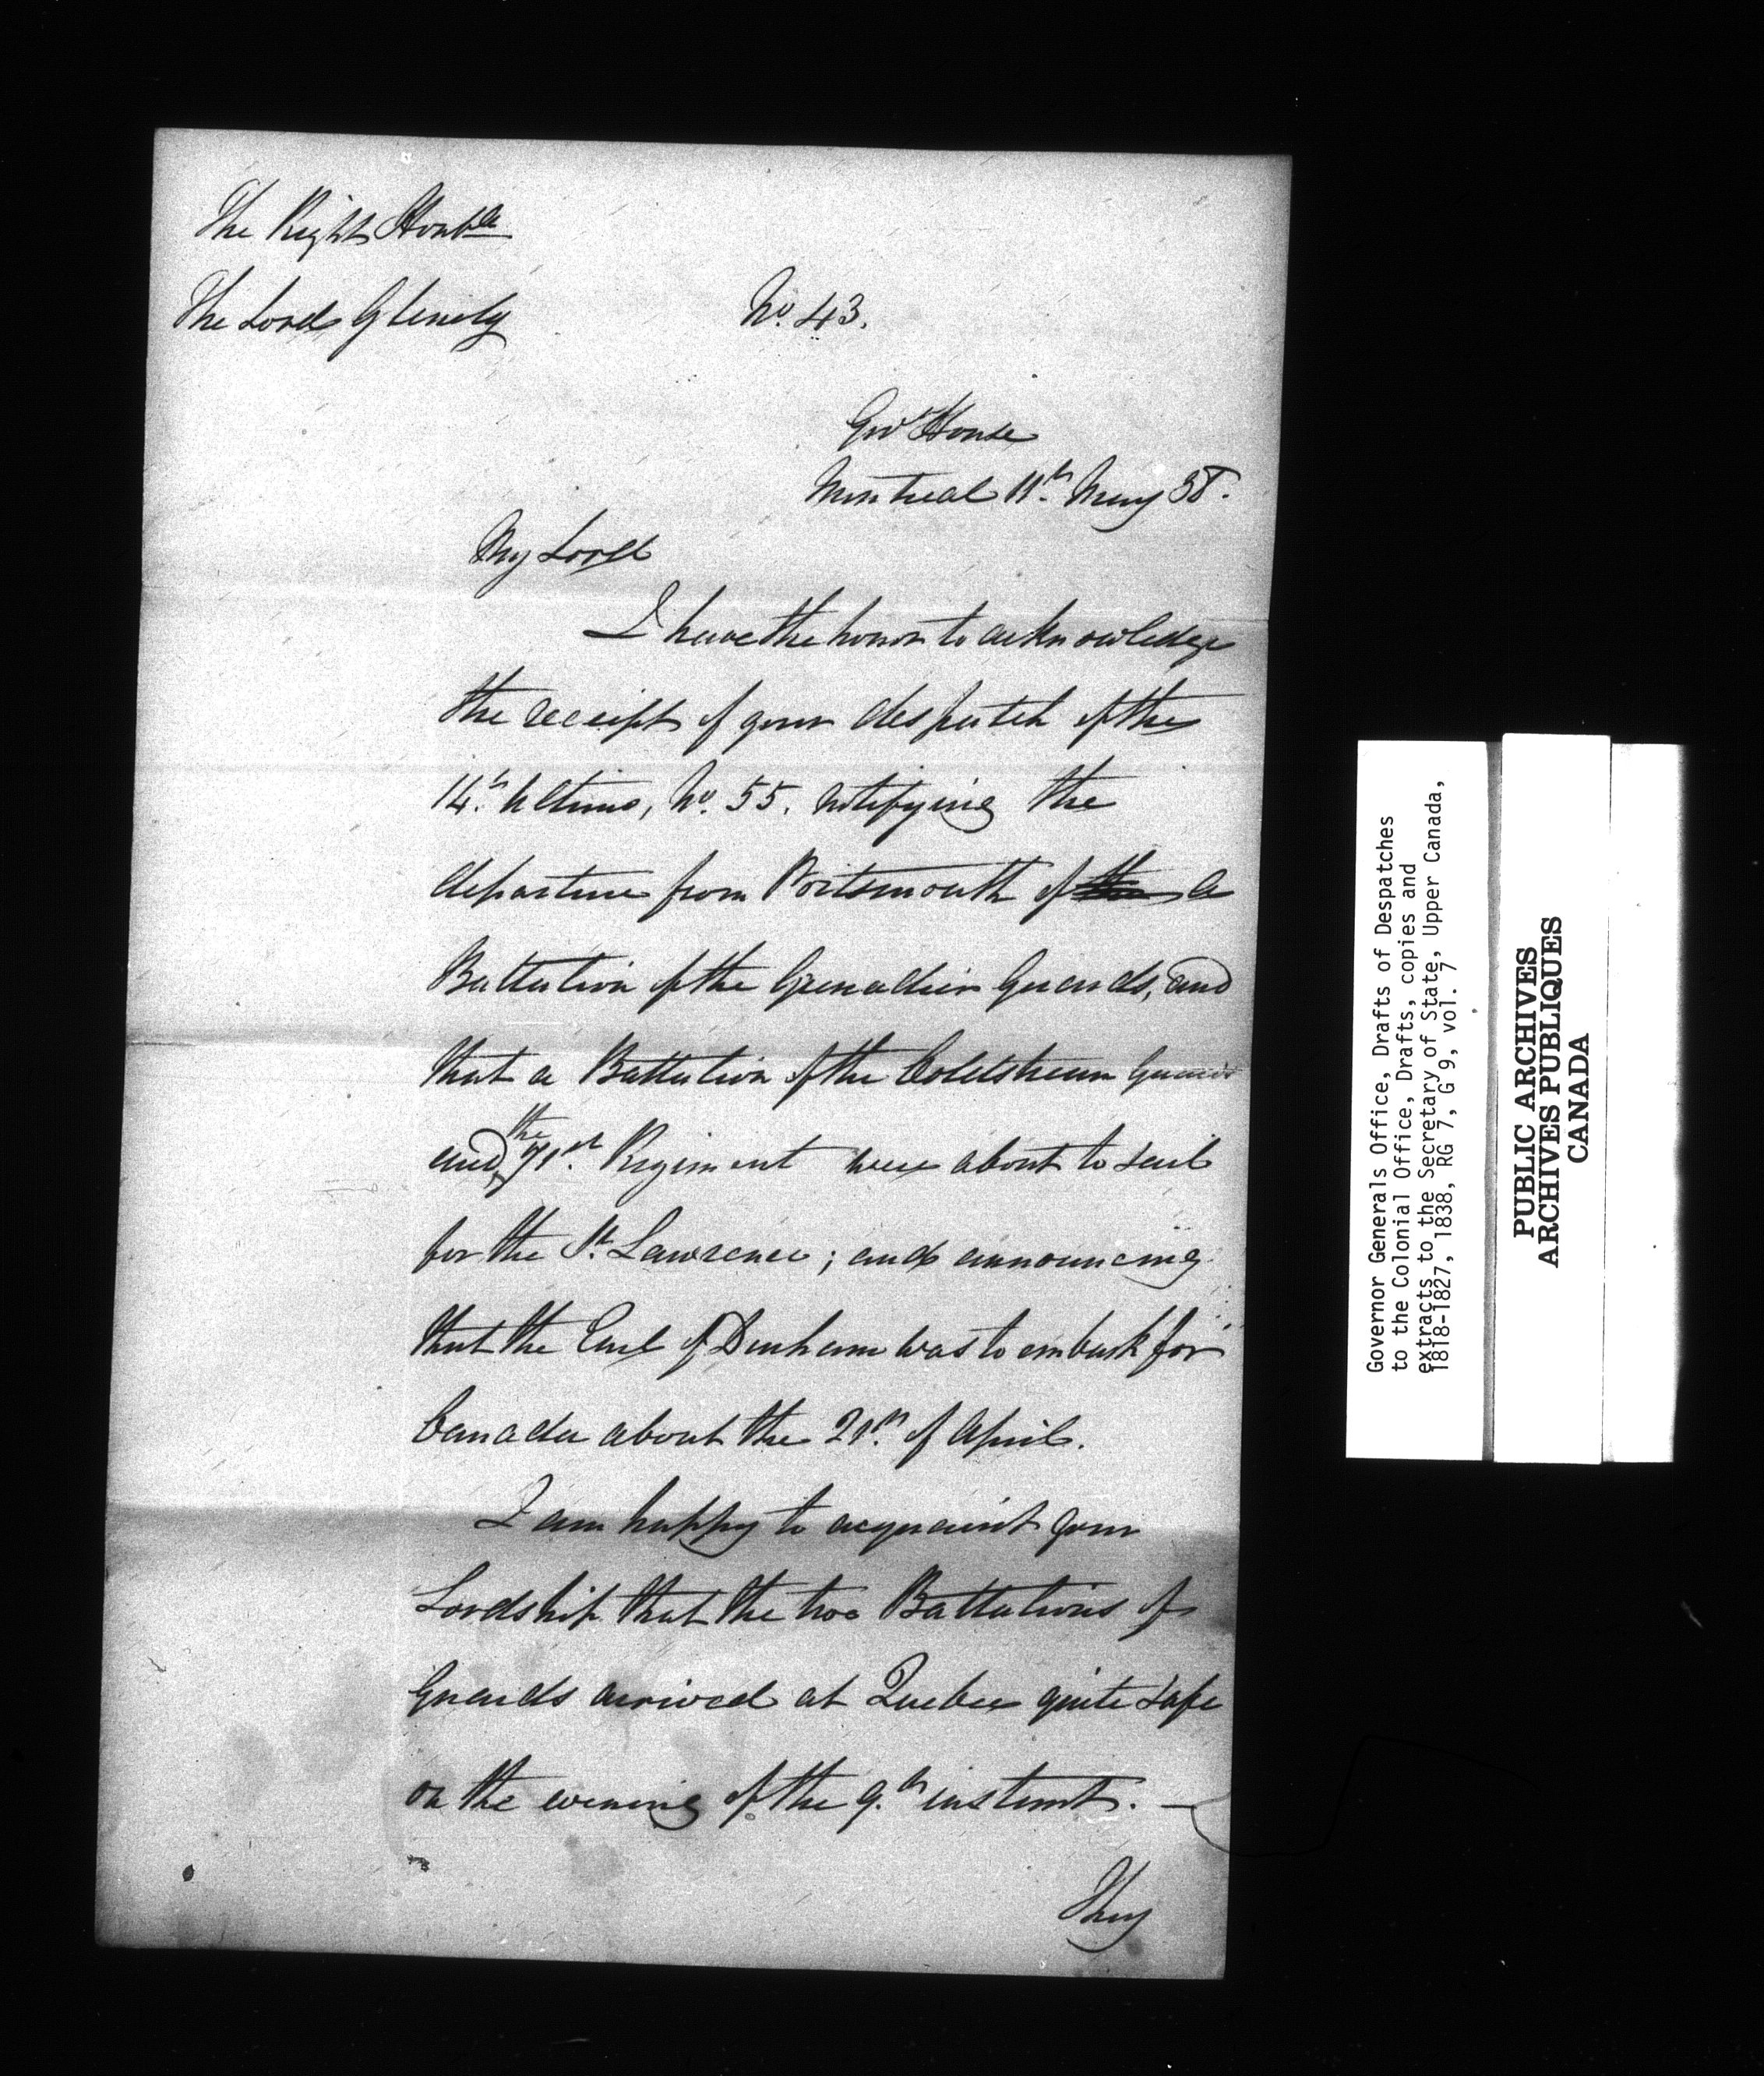 The Right Honble
The Lord Glenelg
No. 43.
Govt House
Montreal 11th May 38.
My Lord
I have the honor to acknowledge
the receipt of your despatch of the
14th Ultimo, No. 55. notifying the
departure from Portsmouth of the a
Battalion of the Grenadier Guards, and
that a Battalion of the Coldstream Guards
and the 71st Regiment were about to sail
for the St. Lawrence; and announcing
that the Earl of Durham was to embark for
Canada about the 21st of April.
I am happy to acquaint your
Lordship that the two Battalions of
Guards arrived at Quebec quite safe
on the evening of the 9th instant. —
They
Governor Generals Office, Drafts of Despatches
to the Colonial Office, Drafts, copies and
extracts to the Secretary of State, Upper Canada,
1818-1827, 1838, RG 7, G 9, vol. 7
PUBLIC ARCHIVES
ARCHIVES PUBLIQUES
CANADA